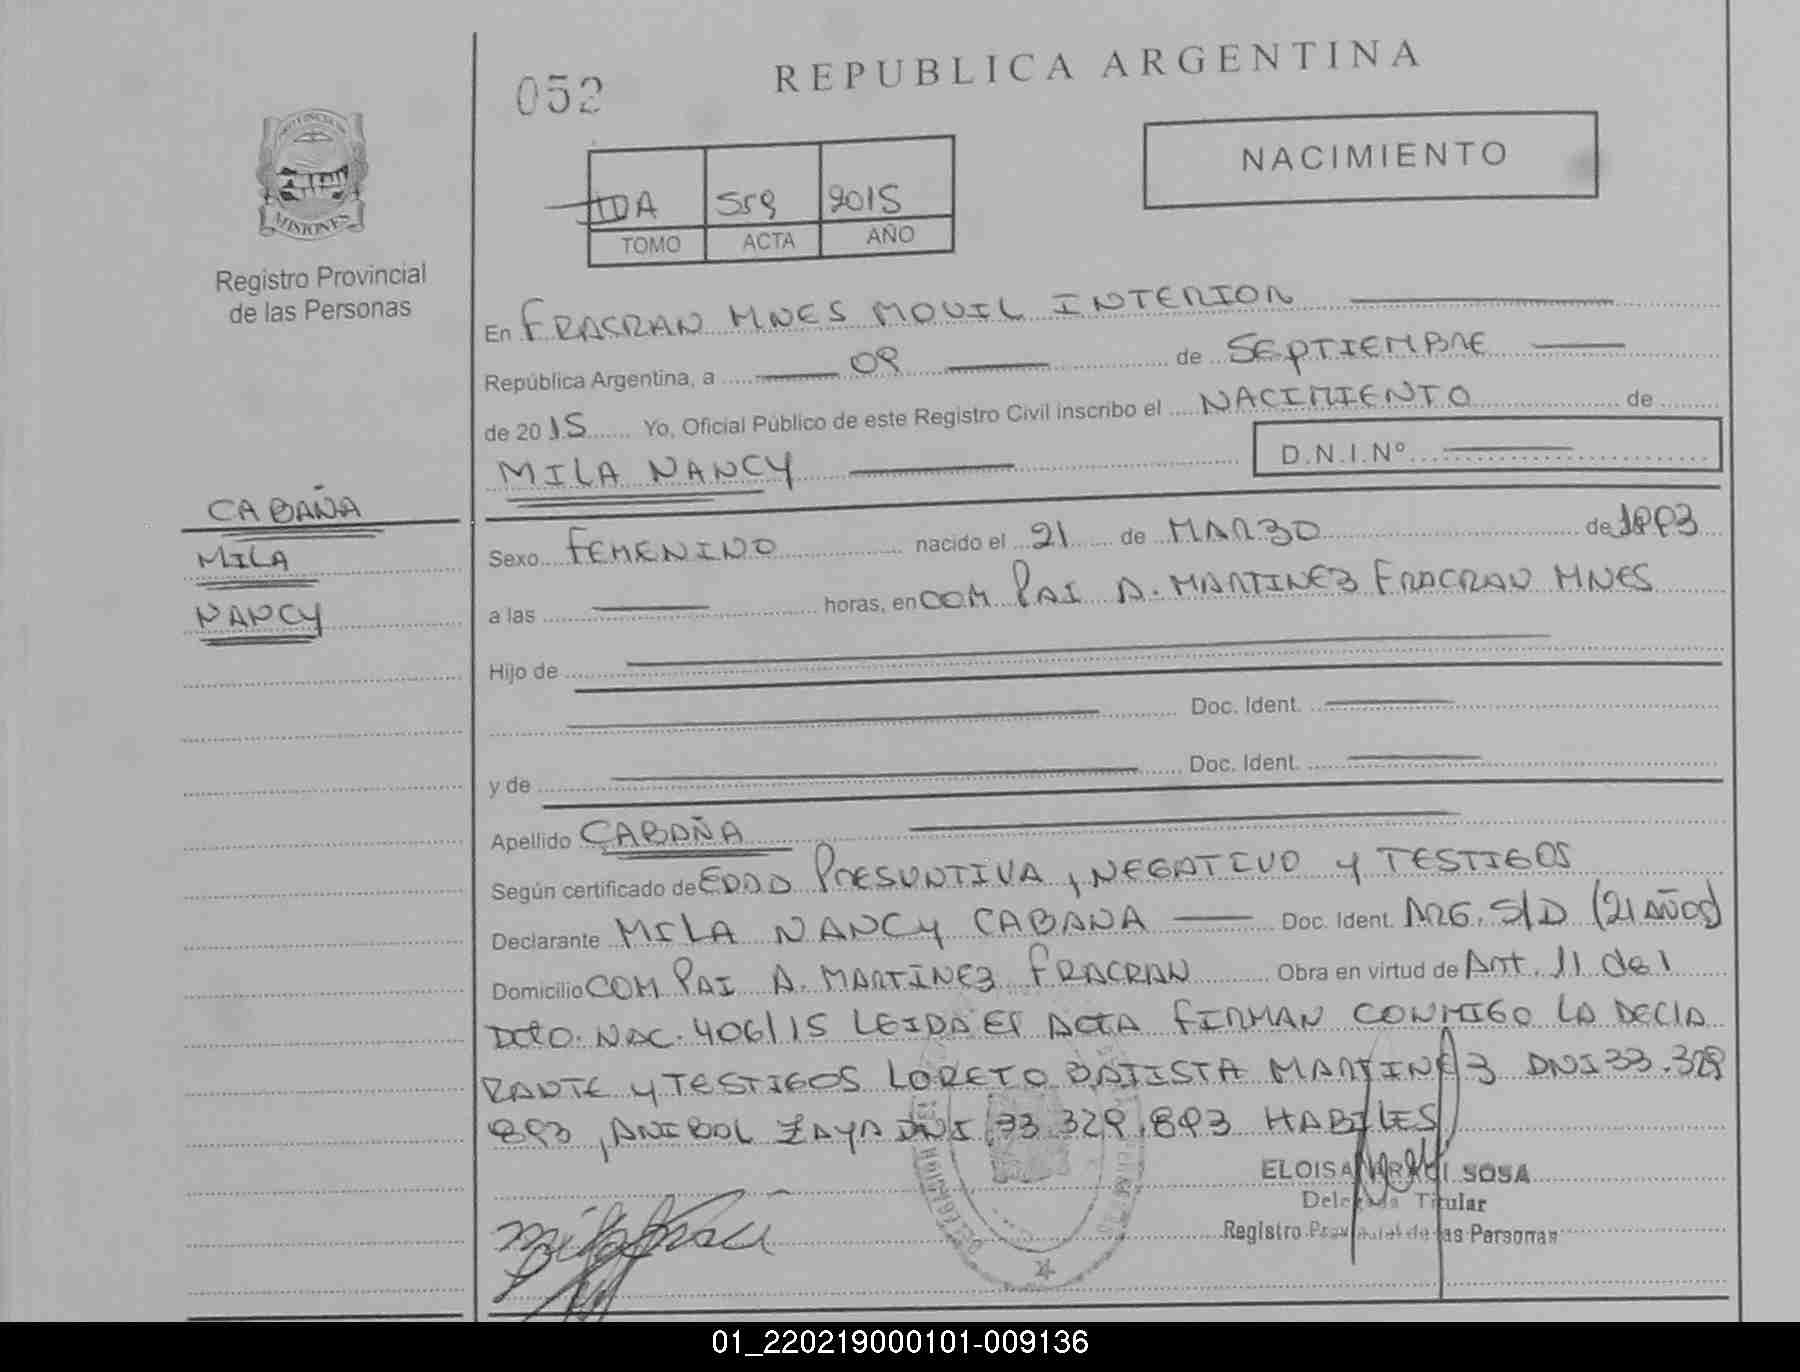 052
REPUBLICA ARGENTINA
PROVINCIA DE
MISIONES
Registro Provincial
de las Personas
NACIMIENTO
IDA 559 2015
TOMO ACTA AÑO
En FRACRAN MNES MOVIL INTERIOR
República Argentina, a 09 de SEPTIEMBRE
de 2015 Yo, Oficial Público de este Registro Civil inscribo el NACIMIENTO de
MILA NANCY D.N.I.Nº
CABAÑA
MILA
NANCY
Sexo FEMENINO nacido el 21 de MARZO de 1993
a las horas, en COM PAI A. MARTINEZ FRACRAN MNES
Hijo de
Doc. Ident.
y de Doc. Ident.
Apellido CABAÑA
Según certificado de EDAD PRESUNTIVA, NEGATIVO Y TESTIGOS
Declarante MILA NANCY CABAÑA Doc. Ident. ARG. S/D (21 AÑOS)
Domicilio COM PAI A. MARTINEZ FRACRAN Obra en virtud de Art. 11 del
DCTO. NAC. 406/15 LEIDA EL ACTA FIRMAN CONMIGO LA DECLA
RANTE Y TESTIGOS LORETO BATISTA MARTINEZ DNI 33.329
893, ANIBAL ZAYA DNI 33.329.893 HABILES
ELOISA SOSA
Delegada Titular
Registro Provincial de las Personas
01_220219000101-009136